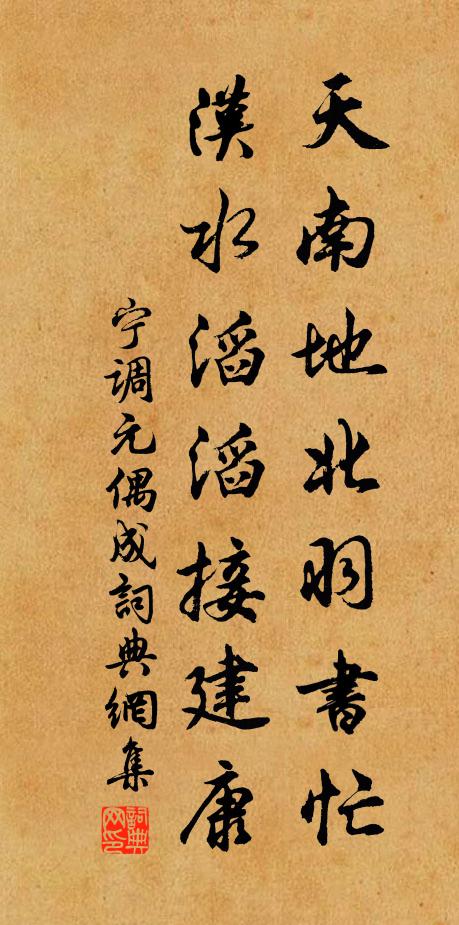 天南地北羽書忙
漢水滔滔接建康
宁调元偶成詞典網集
詞典网印